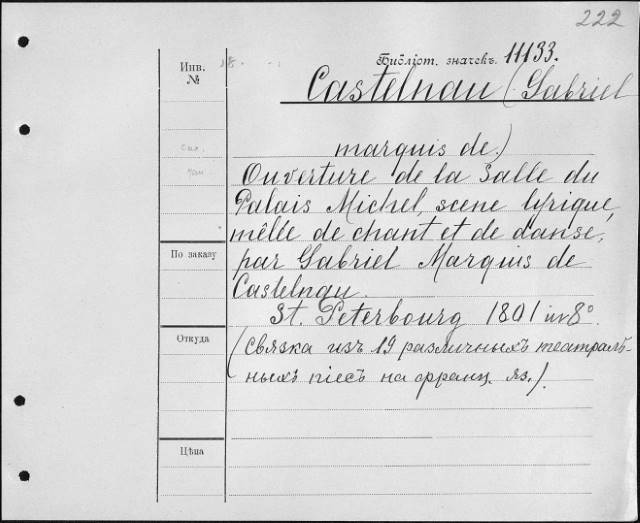 222
Инв.
№
18
Библіот. значекъ. 11133.
Castelnau (Gabriel
marquis de.)
Ouverture de la Salle du
Palais Michel, scene lyrique,
mêlée de chant et de danse,
par Gabriel Marquis de
Castelnau.
St. Peterbourg 1801 in 8º.
(связка изъ 19 различныхъ театраль-
ныхъ піесъ на франц. яз.)
По заказу
Откуда
Цѣна